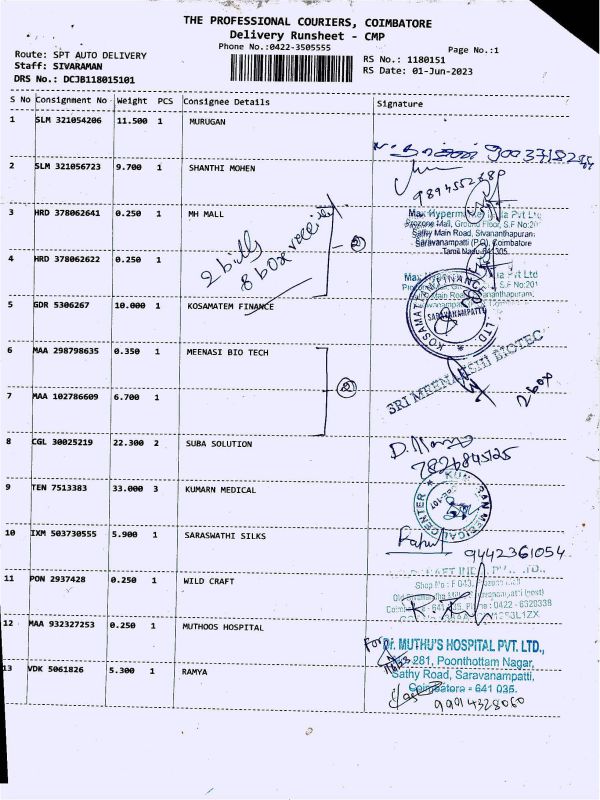 THE PROFESSIONAL COURIERS, COIMBATORE
Delivery Runsheet - CMP
Phone No.:0422-3505555
Page No.:1
Route: SPT AUTO DELIVERY
RS No.: 1180151
Staff: SIVARAMAN
RS Date: 01-Jun-2023
DRS No.: DCJB118015101
S No Consignment No Weight PCS Consignee Details Signature
1 SLM 321054206 11.500 1 MURUGAN
2 SLM 321056723 9.700 1 SHANTHI MOHEN
3 HRD 378062641 0.250 1 MH MALL
2 bills
8 box received.
②
Prozone Mall, Ground Floor, S.F No:20
Sathy Main Road, Sivananthapuram,
Saravanampatti (P.O), Coimbatore
4 HRD 378062622 0.250 1
5 GDR 5306267 10.000 1 KOSAMATEM FINANCE
SARAVANAMPATTI
6 MAA 298798635 0.350 1 MEENASI BIO TECH
②
SRI MEENAKSHI BIOTEC
2 box
7 MAA 102786609 6.700 1
8 CGL 30025219 22.300 2 SUBA SOLUTION
7826845125
9 TEN 7513383 33.000 3 KUMARN MEDICAL
10 IXM 503730555 5.900 1 SARASWATHI SILKS
9442361054
11 PON 2937428 0.250 1 WILD CRAFT
12 MAA 932327253 0.250 1 MUTHOOS HOSPITAL
For Dr. MUTHU'S HOSPITAL PVT. LTD.,
281, Poonthottam Nagar,
13 VDK 5061826 5.300 1 RAMYA
Sathy Road, Saravanampatti,
Coimbatore - 641 035.
9994328060